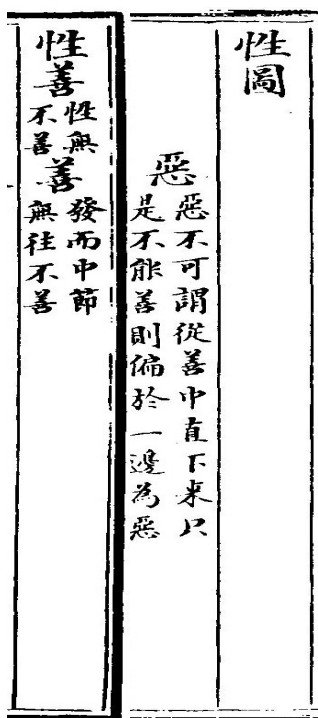 性圖
惡
惡不可謂從善中直下来只
是不能善則偏於一邊為惡
性善
性無
不善
善
發而中節
無往不善